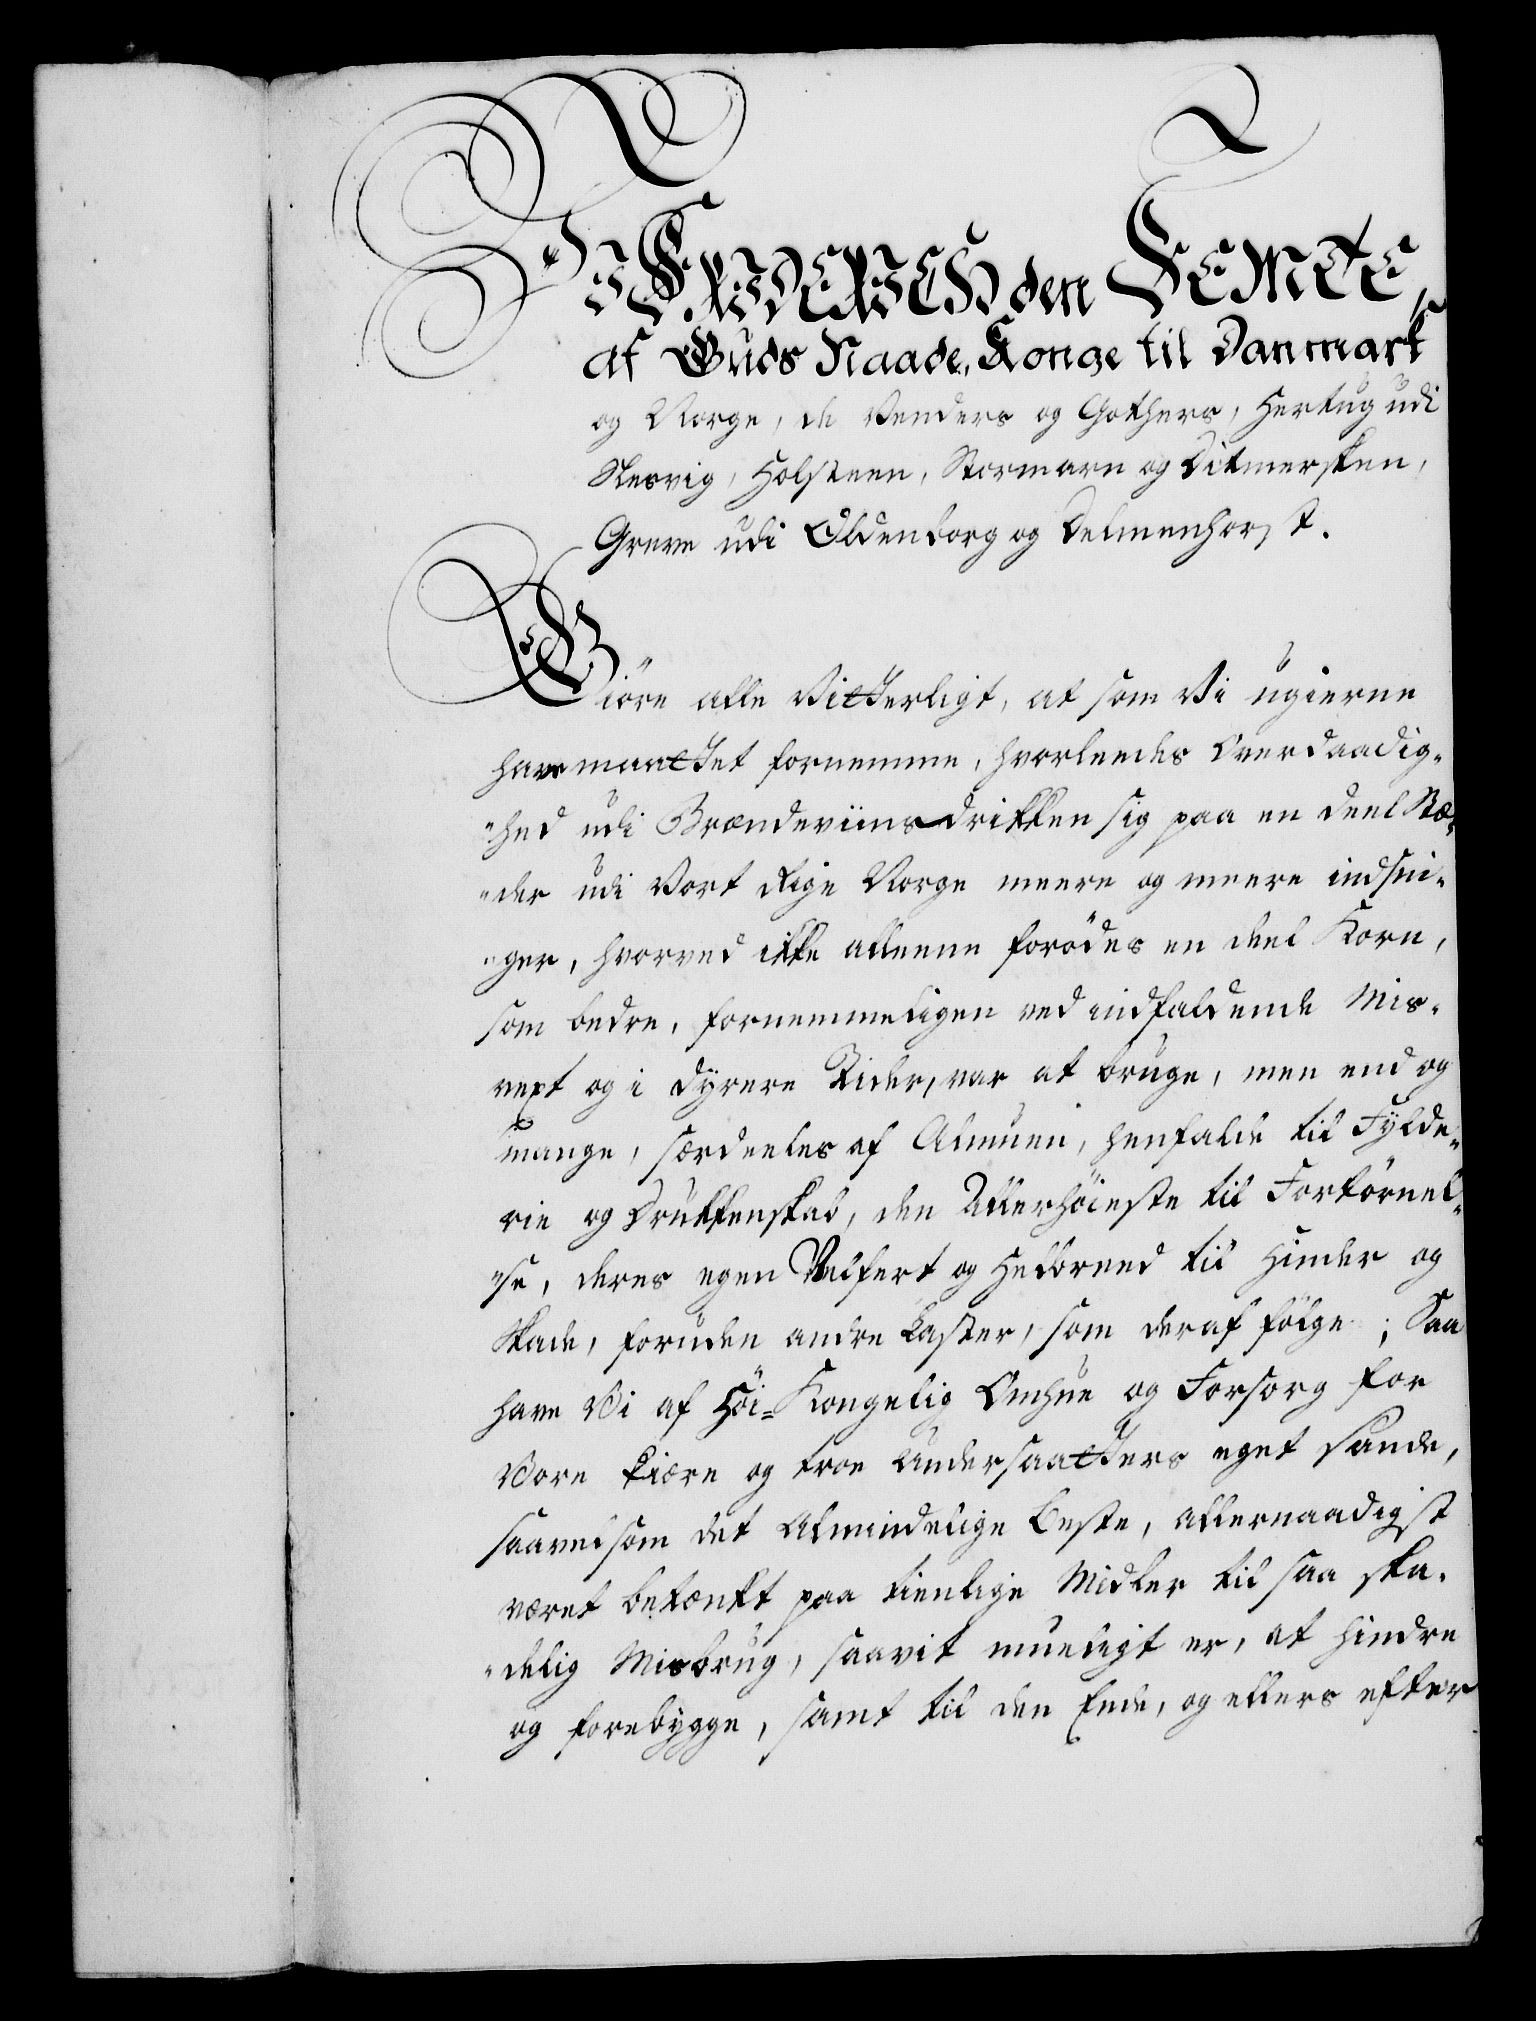 Vi FRIDERICH den FEMTE,
af Guds Naade, Konge til Danmark
og Norge, de Venders og Gothers, Hertug udi
Slesvig, Holsteen, Stormarn og Ditmersken,
Greve udi Oldenborg og Delmenhorst.
Giöre alle Vitterligt, at som Vi ugierne
have maattet fornemme, hvorleedes Overdaadig-
"hed udi Brændeviins drikken sig paa en deel Stæ-
"der udi Vort Rige Norge meere og meere indsni-
"ger, hvorved ikke alleene forödes en deel Korn,
som bedre, fornemmeligen ved indfaldende Mis-
vext og i dÿrere Tider, var at bruge, men end og
mange, særdeeles af Almuen, henfalde til Fÿlde-
rie og Drukkenskab, den Allerhöieste til Fortörnel-
"se, deres egen Velfert og Helbred til Hinder og
Skade, foruden andre Laster, som deraf fölge; Saa
have Vi af Höi-Kongelig Omhue og Forsorg for
Vore kiære og troe Undersaatters eget sande,
saavelsom det Almindelige Beste, allernaadigst
været betænkt paa tienlige Midler til saa ska-
"delig Misbrug, saavit mueligt er, at hindre
og forebÿgge, samt til den Ende, og ellers efter